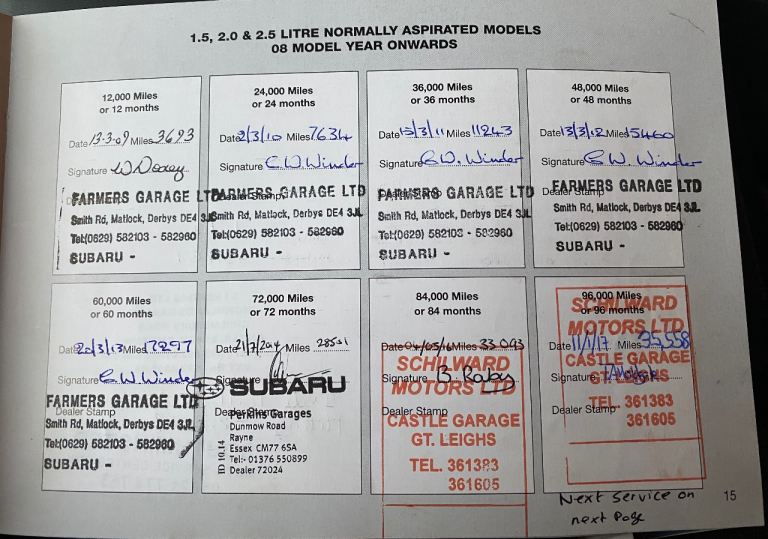 1.5, 2.0 & 2.5 LITRE NORMALLY ASPIRATED MODELS
08 MODEL YEAR ONWARDS
12,000 Miles
or 12 months
Date 13-3-09 Miles 3693
Signature
FARMERS GARAGE LTD
Smith Rd, Matlock, Derbys DE4 3JL
Tel:(0629) 582103 - 582960
SUBARU -
24,000 Miles
or 24 months
Date 2/3/10 Miles 7634
Signature C W Winder
Dealer Stamp
FARMERS GARAGE LTD
Smith Rd, Matlock, Derbys DE4 3JL
Tel:(0629) 582103 - 582960
SUBARU -
36,000 Miles
or 36 months
Date 15/3/11 Miles 11243
Signature C W. Winder
Dealer Stamp
FARMERS GARAGE LTD
Smith Rd, Matlock, Derbys DE4 3JL
Tel:(0629) 582103 - 582960
SUBARU -
48,000 Miles
or 48 months
Date 13/3/12 Miles 15460
Signature C W. Winder
Dealer Stamp
FARMERS GARAGE LTD
Smith Rd, Matlock, Derbys DE4 3JL
Tel:(0629) 582103 - 582960
SUBARU -
60,000 Miles
or 60 months
Date 20/3/13 Miles 17297
Signature C W. Winder
FARMERS GARAGE LTD
Dealer Stamp
Smith Rd, Matlock, Derbys DE4 3JL
Tel:(0629) 582103 - 582960
SUBARU -
72,000 Miles
or 72 months
Date 21/7/2014 Miles 28531
Signature
SUBARU
Dealer Stamp
Perkins Garages
Dunmow Road
Rayne
Essex CM77 6SA
Tel:- 01376 550899
Dealer 72024
ID 10.14
84,000 Miles
or 84 months
Date 04/05/16 Miles 33093
SCHILWARD
Signature
MOTORS LTD
Dealer Stamp
CASTLE GARAGE
GT. LEIGHS
TEL. 361383
361605
96,000 Miles
or 96 months
SCHILWARD
MOTORS LTD
Date 11/1/17 Miles 35,558
CASTLE GARAGE
Signature
GT. LEIGHS
Dealer Stamp
TEL. 361383
361605
Next service on
next Page
15